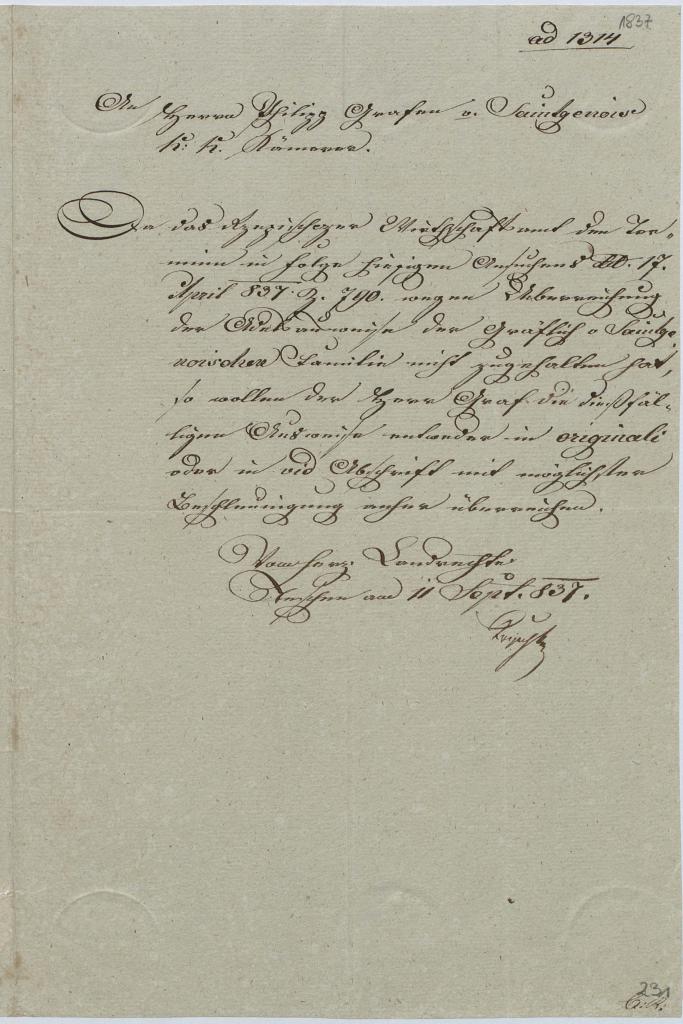 1837
ad 1314
An
Herrn Philipp Grafen v. Saintgenois
K: K. Kämerer.
Da das Wirthschaftsamt den Ter„
min in Folge hiesigen Ansuchens dd. 17.
April 837. Z. 790. wegen Ueberreichung
der Adelsausweise der Gräflich v Saintge
noischen Familie nicht zugehalten hat,
so wollen der Herr Graf die dießfäl„
ligen Ausweise entweder in originali
oder in vid Abschrift mit möglichster
Beschleunigung anher überreichen.
Vom herz: Landrechte
Teschen am 11 Sept. 837.
231